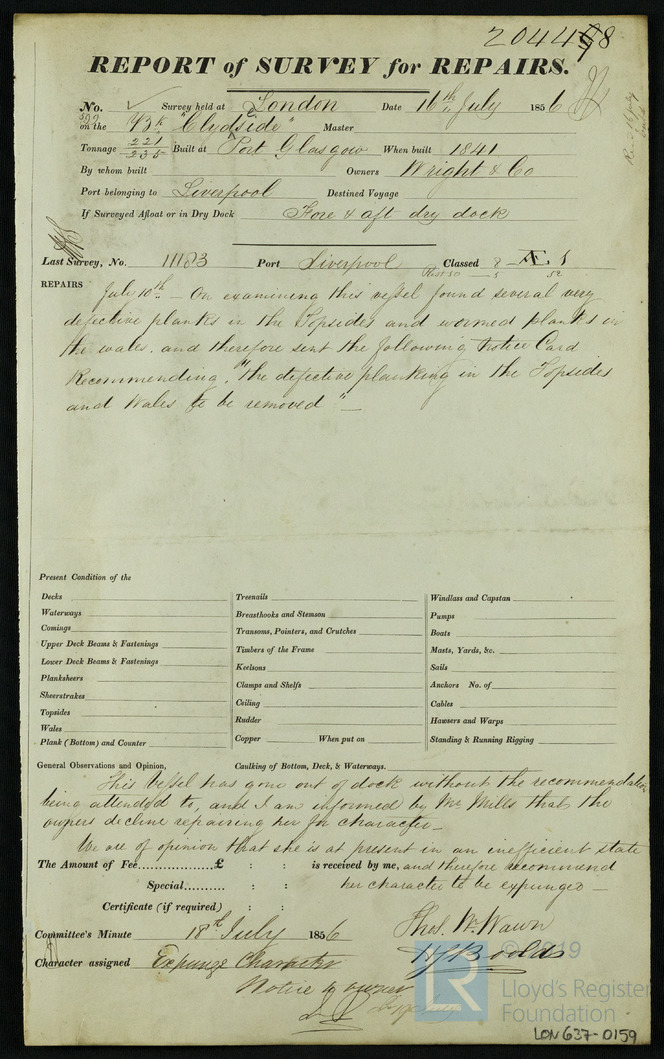 204498
REPORT of SURVEY for REPAIRS.
No. ✓ Survey held at London Date 16th July 1856
on the Bk "Clydeside" Master
Tonnage 221 235 Built at Port Glasgow When built 1841
By whom built Owners Wright & Co
Port belonging to Liverpool Destined Voyage
If Surveyed Afloat or in Dry Dock Fore & aft dry dock
Last Survey, No. 11183 Port Liverpool Classed Æ 1
REPAIRS
July 10th — On examining this vessel found several very
defective planks in the Topsides and wormed planks in
the wales, and therefore sent the following Notice Card
Recommending, "the defective planking in the Topsides
and Wales to be removed" —
Present Condition of the
Decks
Waterways
Comings
Upper Deck Beams & Fastenings
Lower Deck Beams & Fastenings
Planksheers
Sheerstrakes
Topsides
Wales
Plank (Bottom) and Counter
Treenails
Breasthooks and Stemson
Transoms, Pointers, and Crutches
Timbers of the Frame
Keelsons
Clamps and Shelfs
Ceiling
Rudder
Copper When put on
Windlass and Capstan
Pumps
Boats
Masts, Yards, &c.
Sails
Anchors No. of
Cables
Hawsers and Warps
Standing & Running Rigging
General Observations and Opinion, Caulking of Bottom, Deck, & Waterways.
This Vessel has gone out of dock without the recommendation
being attended to, and I am informed by Mr Mills that the
owners decline repairing her for character —
We are of opinion that she is at present in an inefficient state
The Amount of Fee................£ : : is received by me, and therefore recommend
Special.......... : : her character to be expunged —
Certificate (if required) : :
Committee's Minute 18th July 1856 Thos. W. Wawn
Character assigned Expunge Character
Notice to owner
© 2019
LR
Lloyd's Register
Foundation
LON 637-0159